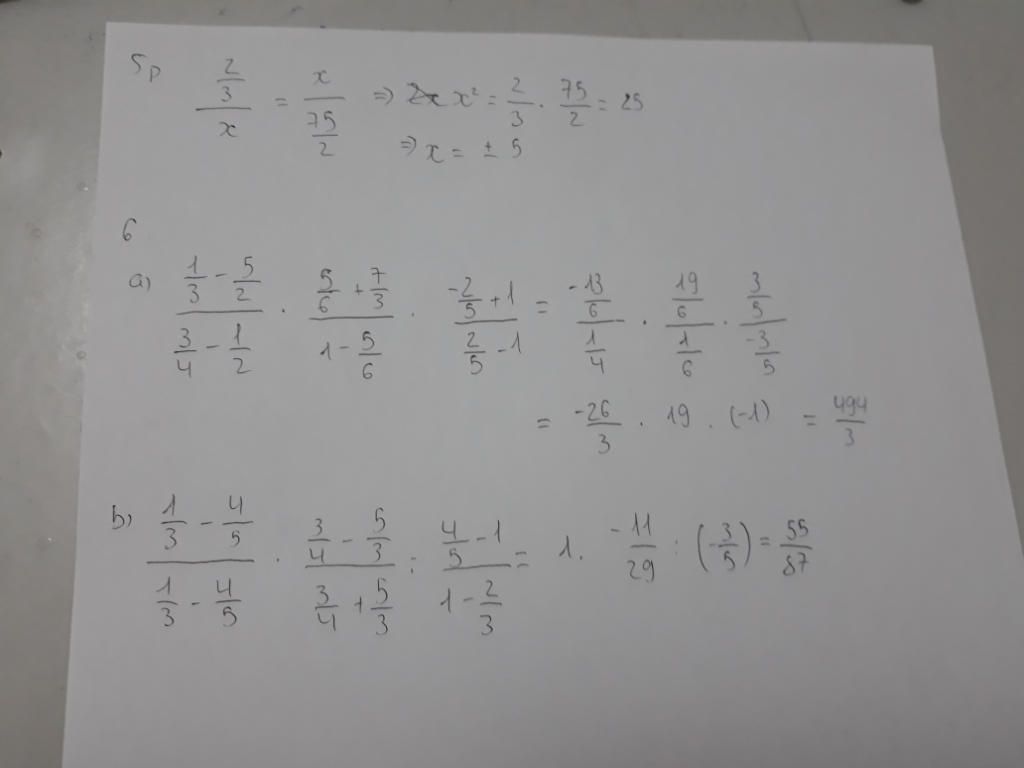 5p (2/3)/x = x/(75/2) => x² = 2/3 · 75/2 = 25
=> x = ± 5
6
a) (1/3 - 5/2)/(3/4 - 1/2) · (5/6 + 7/3)/(1 - 5/6) · (-2/5 + 1)/(2/5 - 1) = (-13/6)/(1/4) · (19/6)/(1/6) · (3/5)/(-3/5)
= -26/3 · 19 · (-1) = 494/3
b) (1/3 - 4/5)/(1/3 - 4/5) · (3/4 - 5/3)/(3/4 + 5/3) : (4/5 - 1)/(1 - 2/3) = 1 · -11/29 : (-3/5) = 55/87